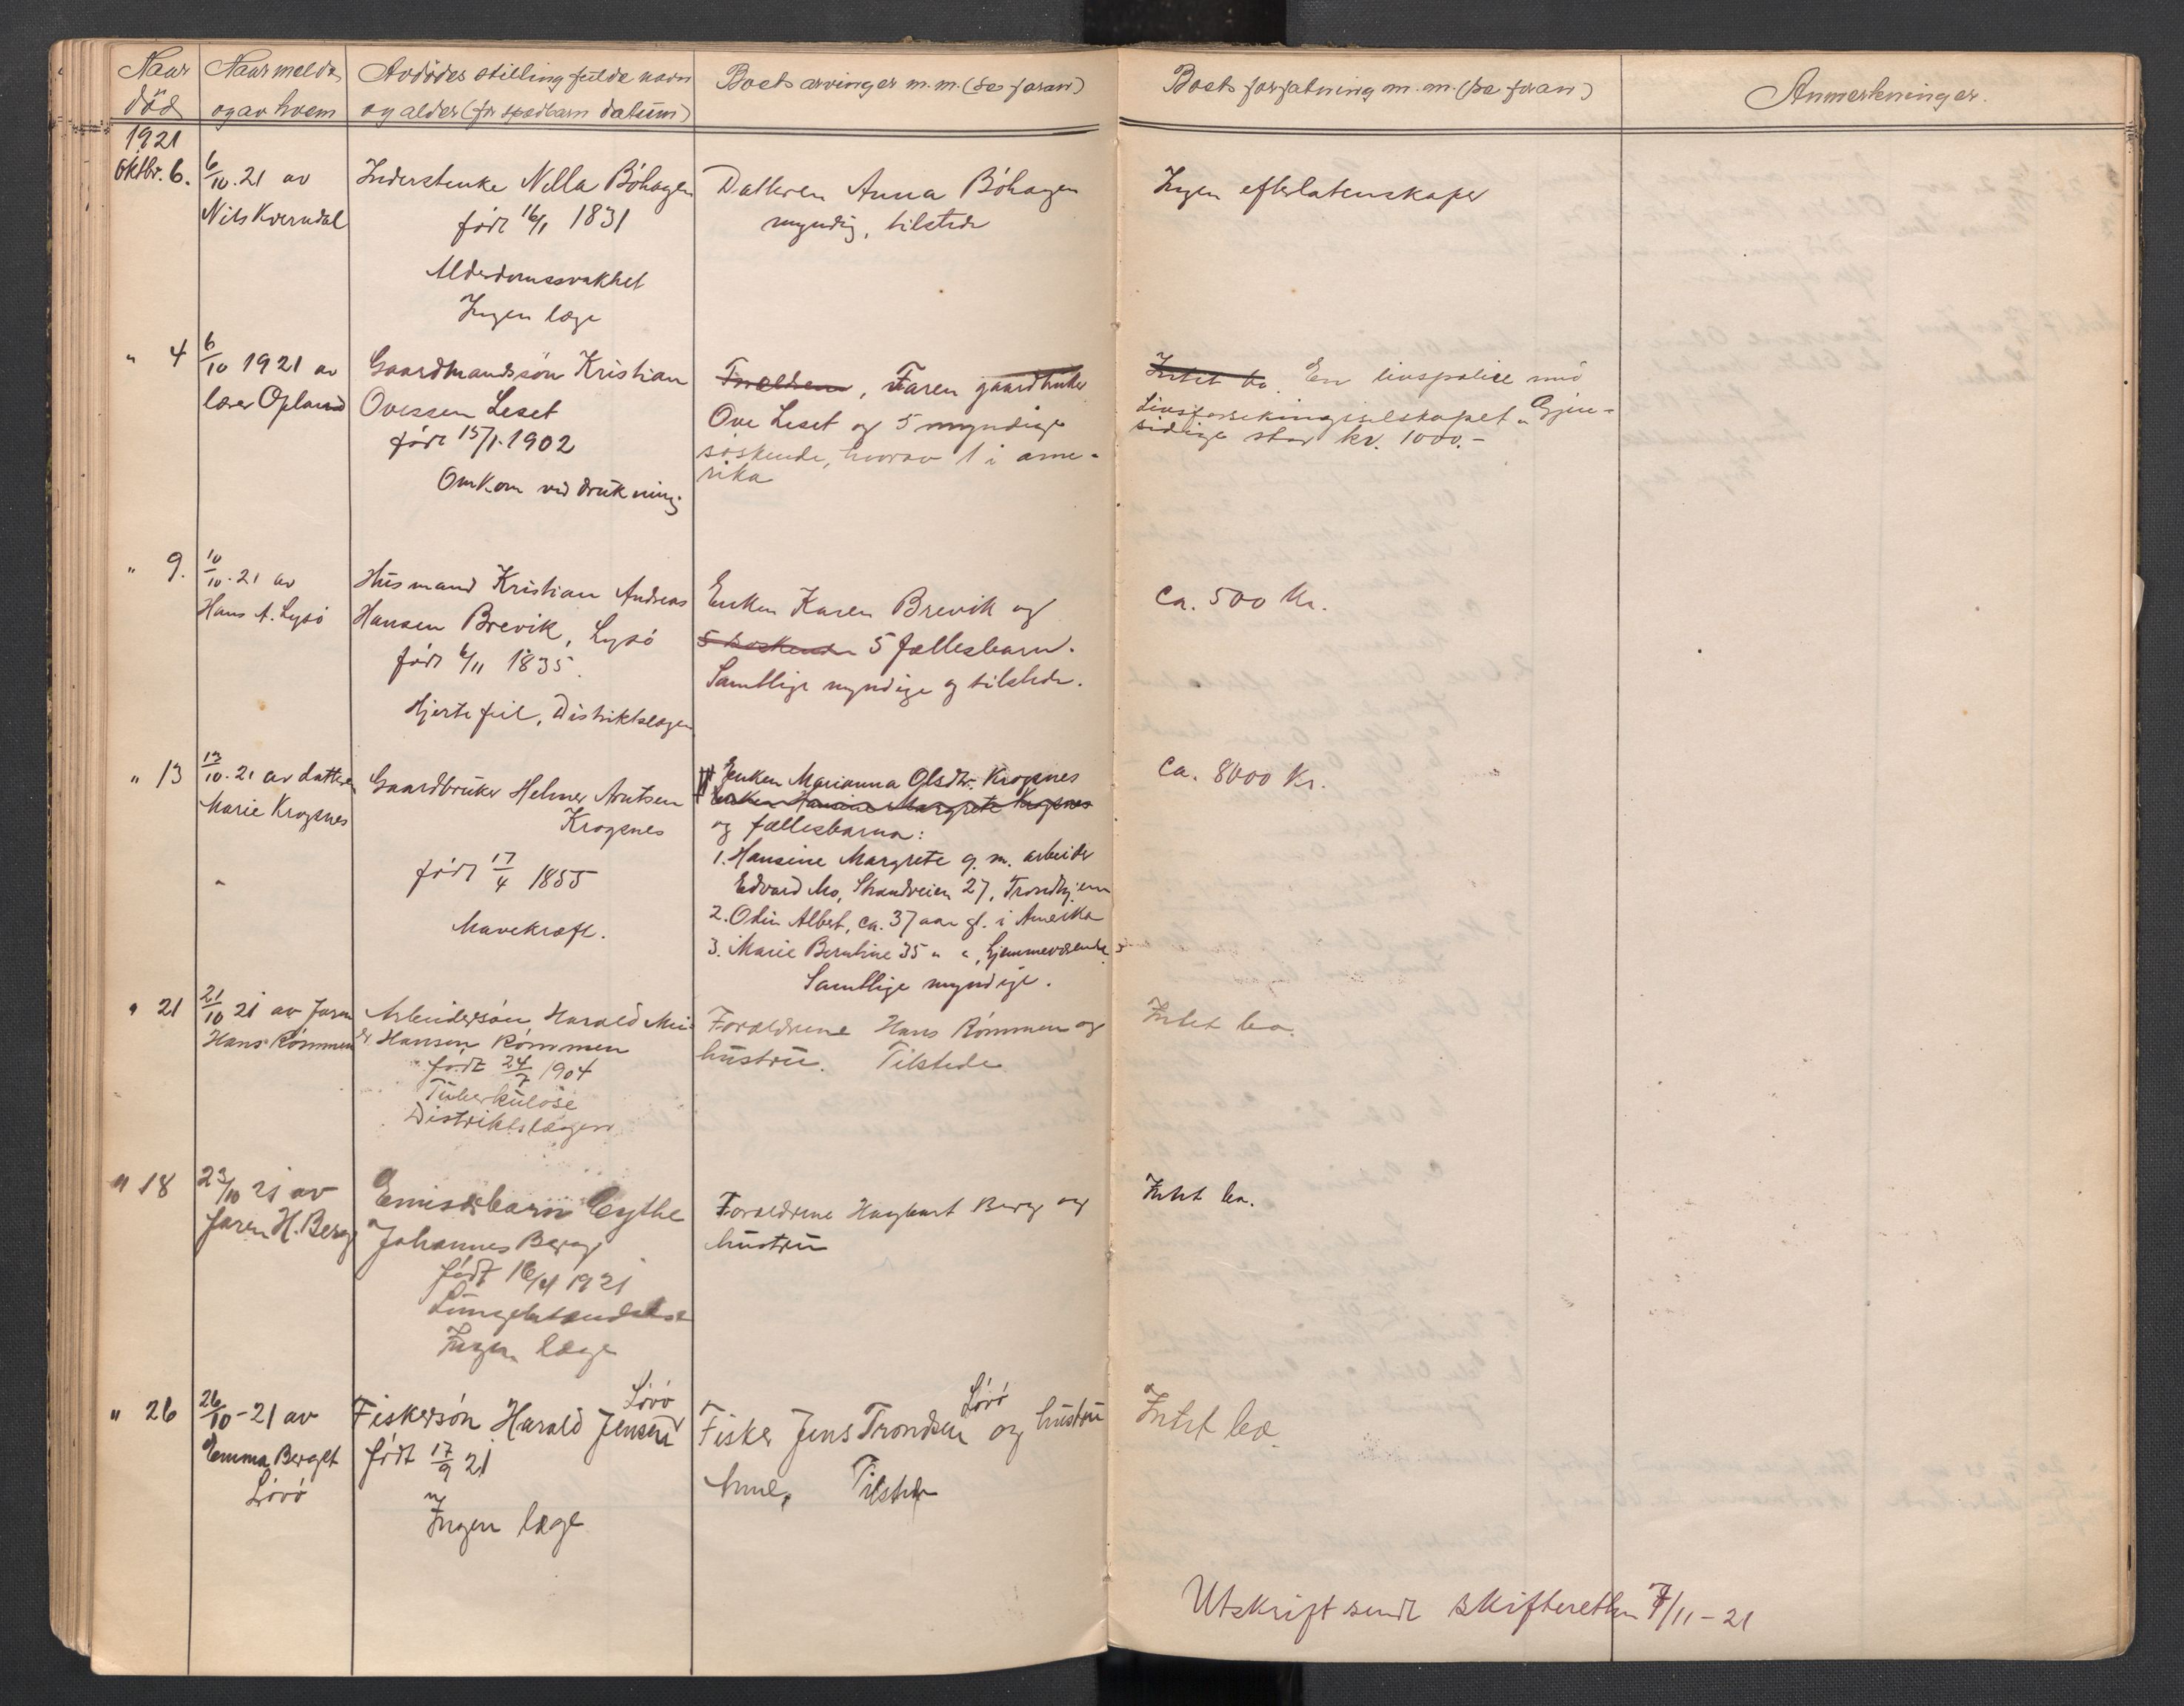 Naar død
Naar meldt og av hvem
Avdødes stilling fulde navn og alder (for spædbarn datum)
Boets arvinger m.m. (se foran)
Boets forfatning m.m. (se foran)
Anmerkninger.
1921
Oktbr. 6.
6/10. 21 av
Nils Kverndal
Inderstenke Nella Böhagen
född 16/1 1831
Alderdomssvakhet
Ingen læge
Datteren Anna Böhagen
myndig, tilstede
Ingen efterlatenskaper
" 4
6/10 1921 av
lærer Opland
Gaardmandssön Kristian
Ovessen Leset
født 15/1. 1902
Omkom ved drukning.
Faren gaardbruker
Ove Leset og 5 myndige
søskende, hvorav 1 i ame-
rika
Intet bo. En livspolice med
Livsforsikringsselskapet "Gjen-
sidige stor kr. 1000.-
" 9.
10/10. 21 av
Hans A. Lysö
Husmand Kristian Andreas
Hansen Brevik, Lysö
född 6/11 1835.
Hjertefeil, Distriktslægen
Enken Karen Brevik og
5 søskende 5 fællesbarn.
Samtlige myndige og tilstede.
Ca. 500 Kr.
" 13
13/10. 21 av datteren
Marie Krogsnes
Gaardbruker Helmer Arntsen
Krogsnes
født 17/4 1855
Mavekræft.
Enken Marianna Olsdtr. Krogsnes
Enken Hansine Margrete Krogsnes
og fællesbarna:
1. Hansine Margrete g. m. arbeider
Edvard Mo, Strandveien 27, Trondhjem
2. Odin Albert, ca. 37 aar gl. i Amerika
3. Marie Berntine 35 " ", hjemmeværende
Samtlige myndige.
Ca. 8000 Kr.
" 21
21/10 21 av faren
Hans Römmen
Arbeidersön Harald Mei-
er Hansen Römmen
født 24/7 1904
Tuberkulose
Distriktslægen
Forældrene Hans Römmen og
hustru. Tilstede
Intet bo.
" 18
23/10 21 av
faren H. Berg
Johannes Berg
født 16/4 1921
Lungebetændelse
Ingen læge
Forældrene Hagbart Berg og
hustru
Intet bo.
" 26
26/10 - 21 av
Emma Berget
Lövö
Fiskersön Harald Jensen Lövö
född 17/9 21
Ingen læge
Fisker Jens Trondsen Lövö og hustru
Tilstede
Intet bo.
Utskrift sendt skifteretten 7/11 - 21